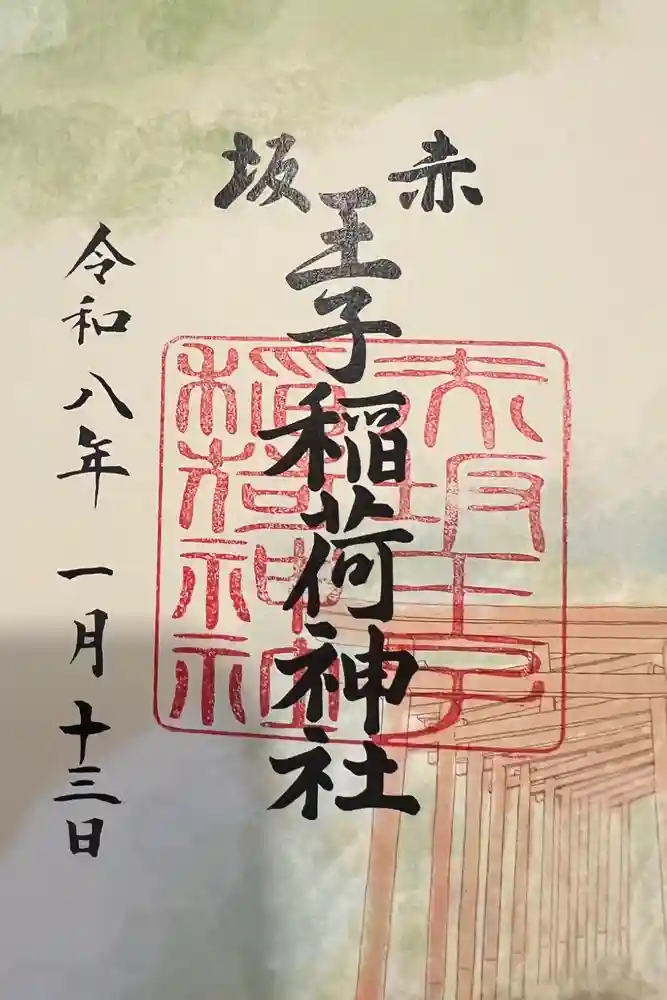 赤坂
王子稲荷神社
令和八年 一月 十三日
赤坂王子
稲荷神社